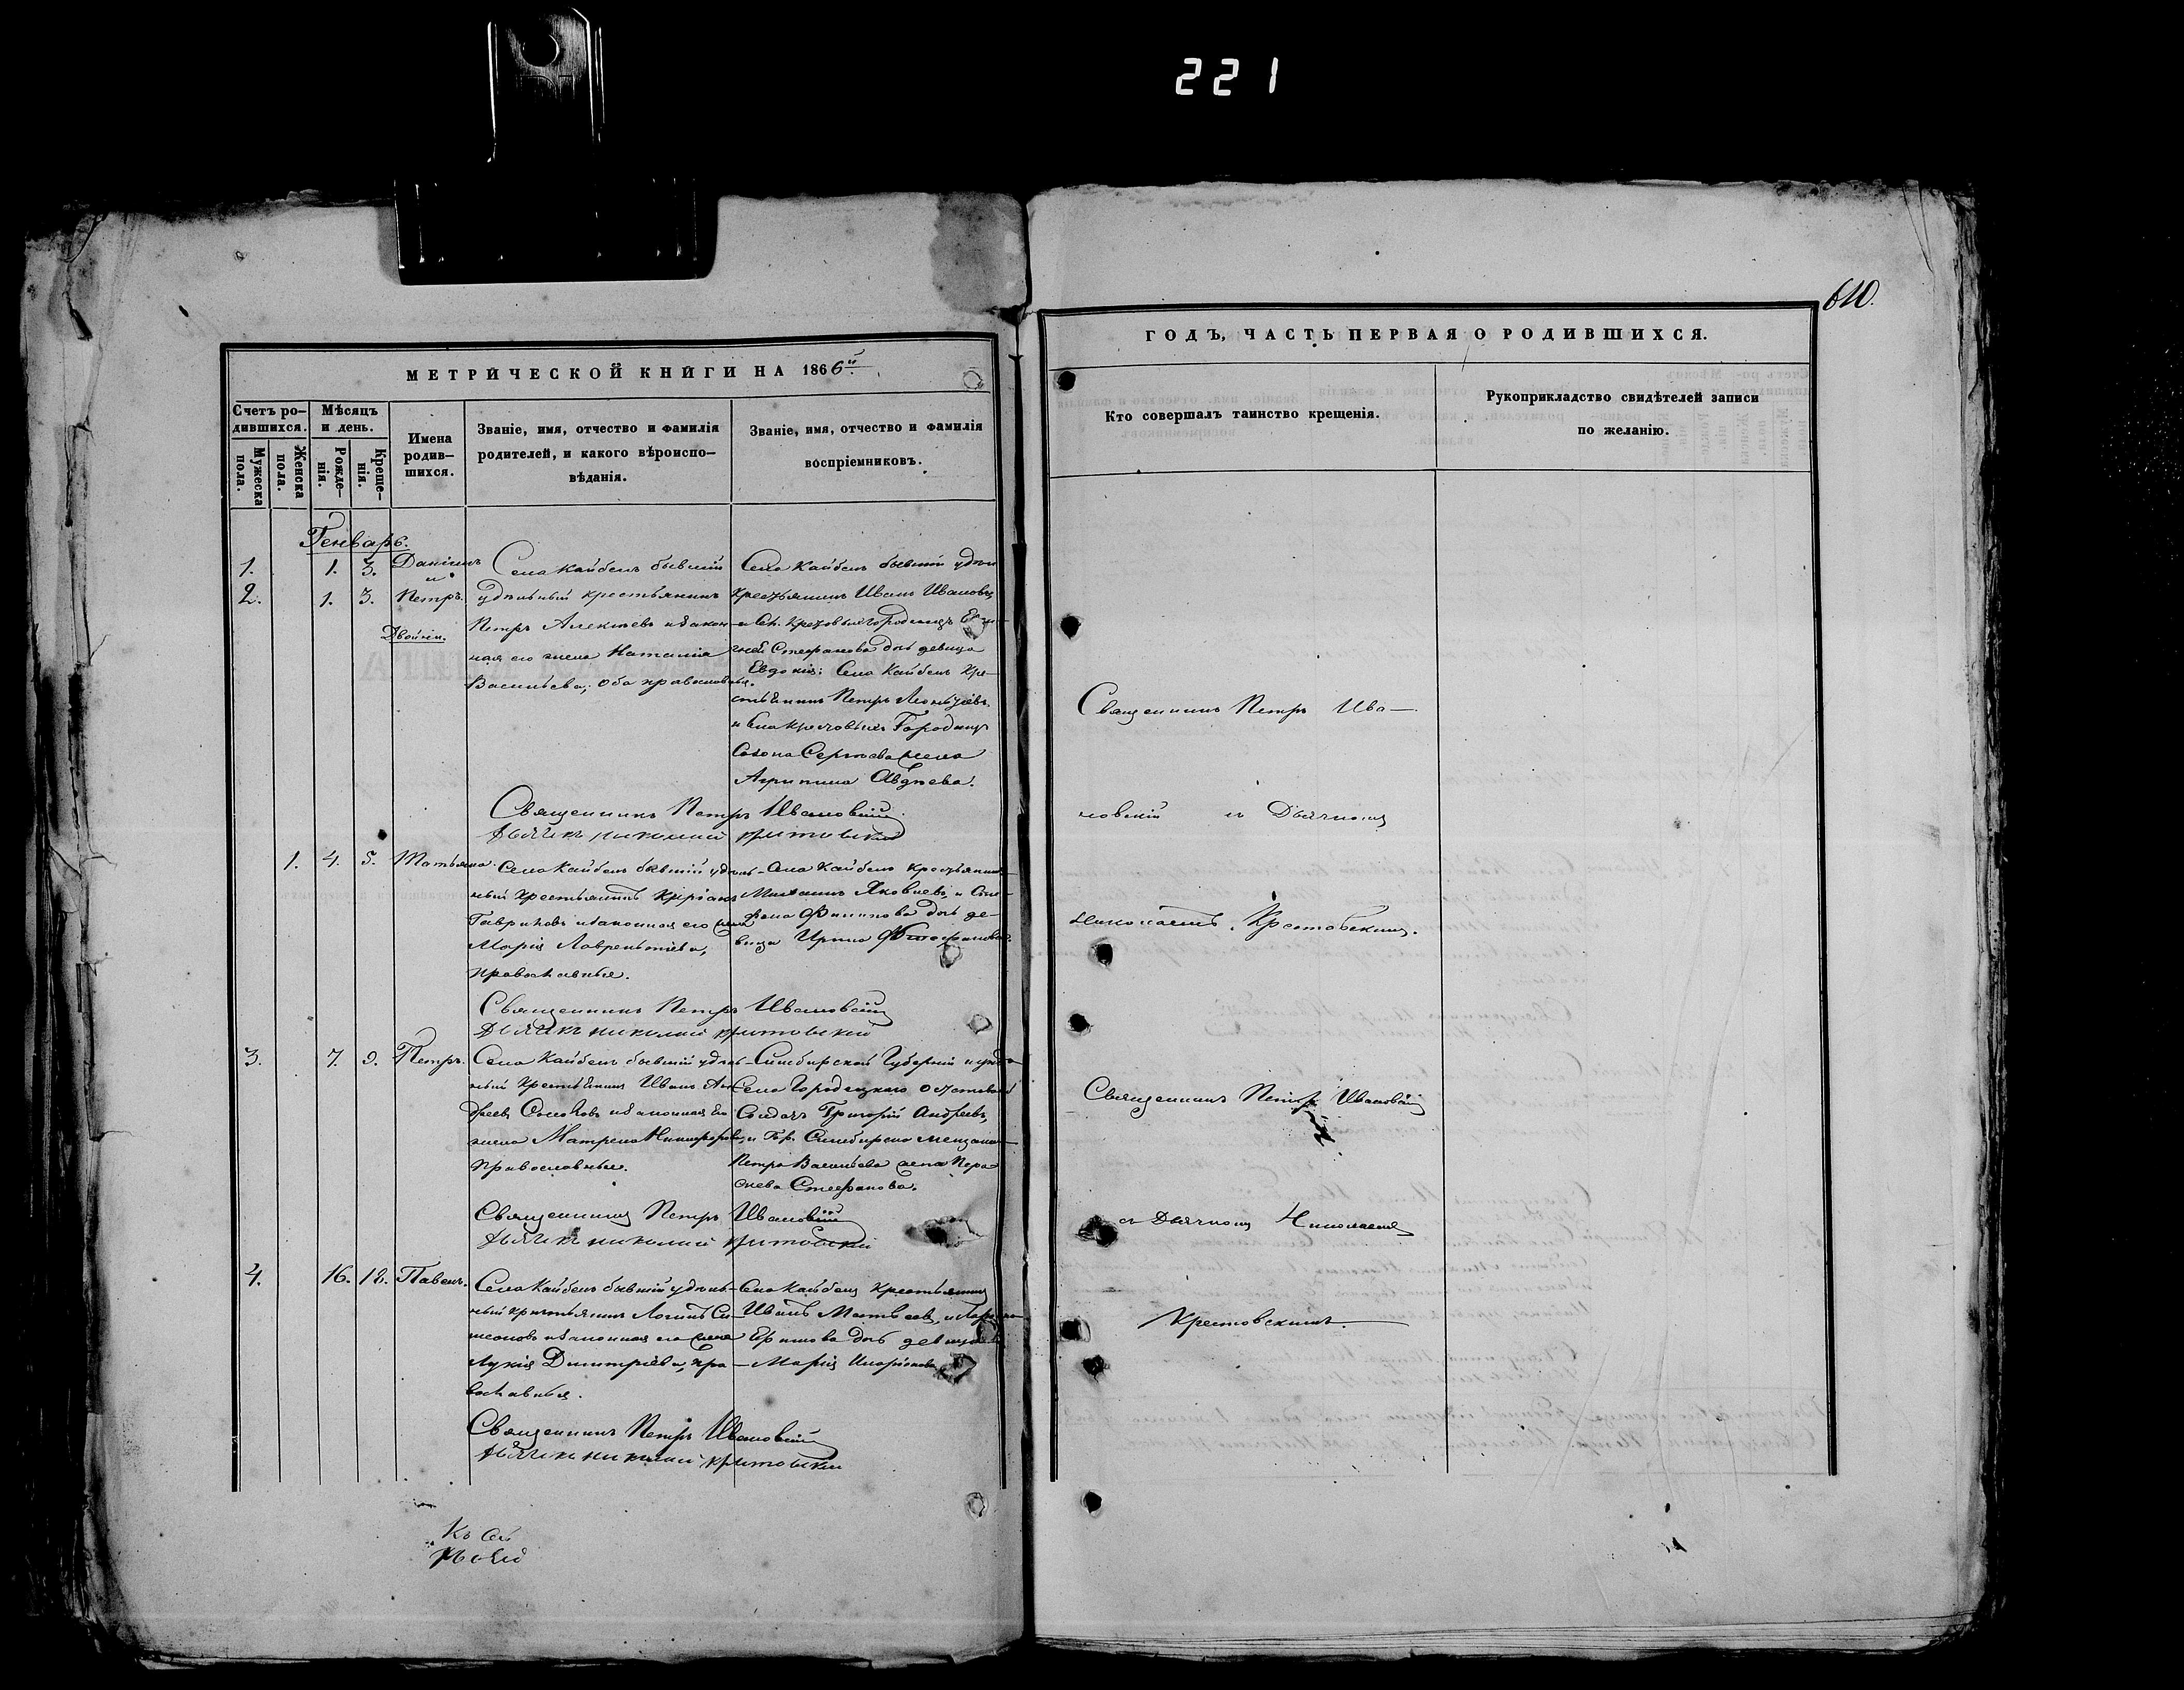 221
610.
МЕТРИЧЕСКОЙ КНИГИ НА 1866й.
Счетъ ро-
дившихся.
Мѣсяцъ
и день.
Мужеска
пола.
Женска
пола.
Рожде-
нія.
Креще-
нія.
Имена
родив-
шихся.
Званіе, имя, отчество и фамилія
родителей, и какого вѣроиспо-
вѣданія.
Званіе, имя, отчество и фамилія
воспріемниковъ.
Генварь.
1. 1. 3. Даніилъ
и
2. 1. 3. Петръ.
Двойни.
Села Кайбелъ бывшій
удѣльный крестьянинъ
Петръ Алексѣевъ и закон-
ная его жена Наталія
Васильева, оба православные.
Села Кайбелъ бывшій удѣл
крестьянинъ Иванъ Ивановъ
Стефанова дочь девица
Евдокія: Села Кайбелъ кре-
стьянинъ Петръ Леонтьевъ
Городищъ
Сергѣева жена
Агрипина Авдѣева.
Священникъ Петръ Ивановскій
Дьячекъ Николай Крестовскій
1. 4. 5. Татьяна.
Села Кайбелъ бывшій удѣль-
ный крестьянинъ
Гавриловъ и законная его жена
Марія Лаврентьева,
православные.
Села Кайбелъ крестьянинъ
Михаилъ Яковлевъ, и Сте-
фана Филипова дочь де-
вица Ирина
Священникъ Петръ Ивановскій
Дьячекъ Николай Крестовскій
3. 7. 9. Петръ.
Села Кайбелъ бывшій удѣль-
ный крестьянинъ Иванъ Ан-
дреевъ и законная его
жена Матрена Никифорова,
православные.
Симбирской Губерніи и уѣзда
Села Городецкаго
Солдатъ Григорій Андреевъ,
и Гор. Симбирска мещанина
Петра Васильева жена Пара-
скева Стефанова.
Священникъ Петръ Ивановскій
Дьячекъ Николай Крестовскій
4. 16. 18. Павелъ.
Села Кайбелъ бывшій удѣль-
ный крестьянинъ Логинъ Си-
меоновъ и законная его жена
Лукія Димитріева, пра-
вославныя.
Села Кайбелъ крестьянинъ
Иванъ Матвеевъ, и
дочь девица
Марія
Священникъ Петръ Ивановскій
Дьячекъ Николай Крестовскій
ГОДЪ, ЧАСТЬ ПЕРВАЯ О РОДИВШИХСЯ.
Кто совершалъ таинство крещенія.
Рукоприкладство свидѣтелей записи
по желанію.
Священникъ Петръ Ива-
новскій съ Дьячкомъ
Николаемъ Крестовскимъ.
Священникъ Петръ Ивановскій
съ Дьячкомъ Николаемъ
Крестовскимъ.